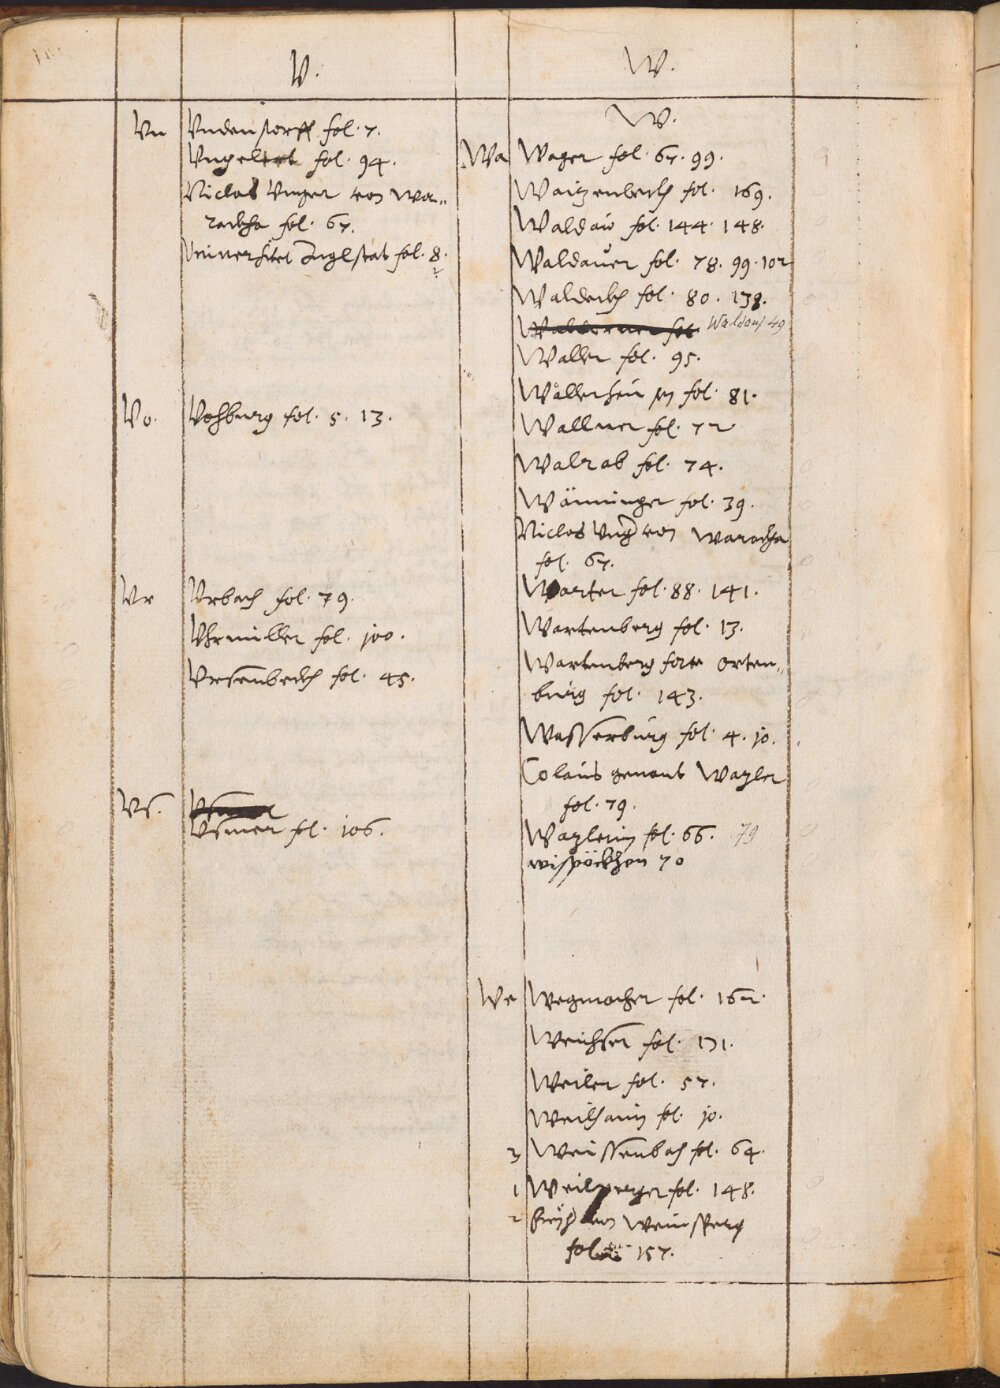 V.
Vn
Vndenstorff fol. 7.
Vngelter fol. 94.
Niclas Vnger von Wa=
rackha fol. 67.
Vniuersitet Inglstat fol. 8.
Vo.
Vohburg fol. 5. 13.
Vr
Vrbach fol. 79.
Vhrmüller fol. 100.
Vrsenbeckh fol. 45.
Vs.
Vsmer fol. 106.
W.
W.
Wa
Wager fol. 67. 99.
Waitzenbeckh fol. 169.
Waldaw fol. 144. 148.
Waldauer fol. 78. 99. 102
Waldeckh fol. 80. 138.
49
Waller fol. 95.
fol. 81.
Wallner fol. 72
Walrab fol. 74.
Wäminger fol. 39.
Niclas Vng von Warackha
fol. 67.
Warter fol. 88. 141.
Wartenberg fol. 13.
Wartenberg forte orten=
burg fol. 143.
Wasserburg fol. 4. 10.
Colaus genant Wazler
fol. 79.
Wazlerin fol. 66. 79
wispöckhen 70
We
Wegmacher fol. 162.
Weichser fol. 171.
Weiler fol. 57.
Weilhaim fol. 10.
3 Weissenbach fol. 64.
1 fol. 148.
2 von Weinsperg
fol. 157.